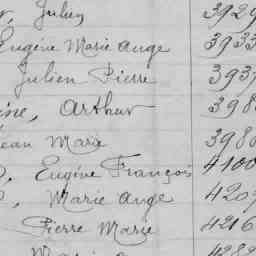 Julien 3929
Eugène Marie Ange 3933
Julien Pierre 3937
Arthur 398
Jean Marie 398
Eugène François 4100
Marie Ange 4207
Pierre Marie 4216
Marie